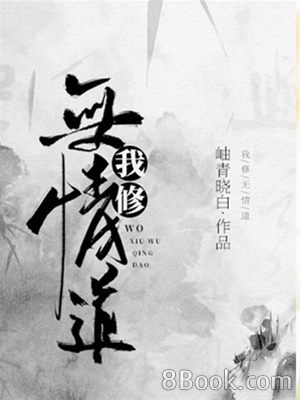 我修
無情道
WO
XIU WU
QING
DAO
我/修/无/情/道
岫青晓白·作品
8Book.com